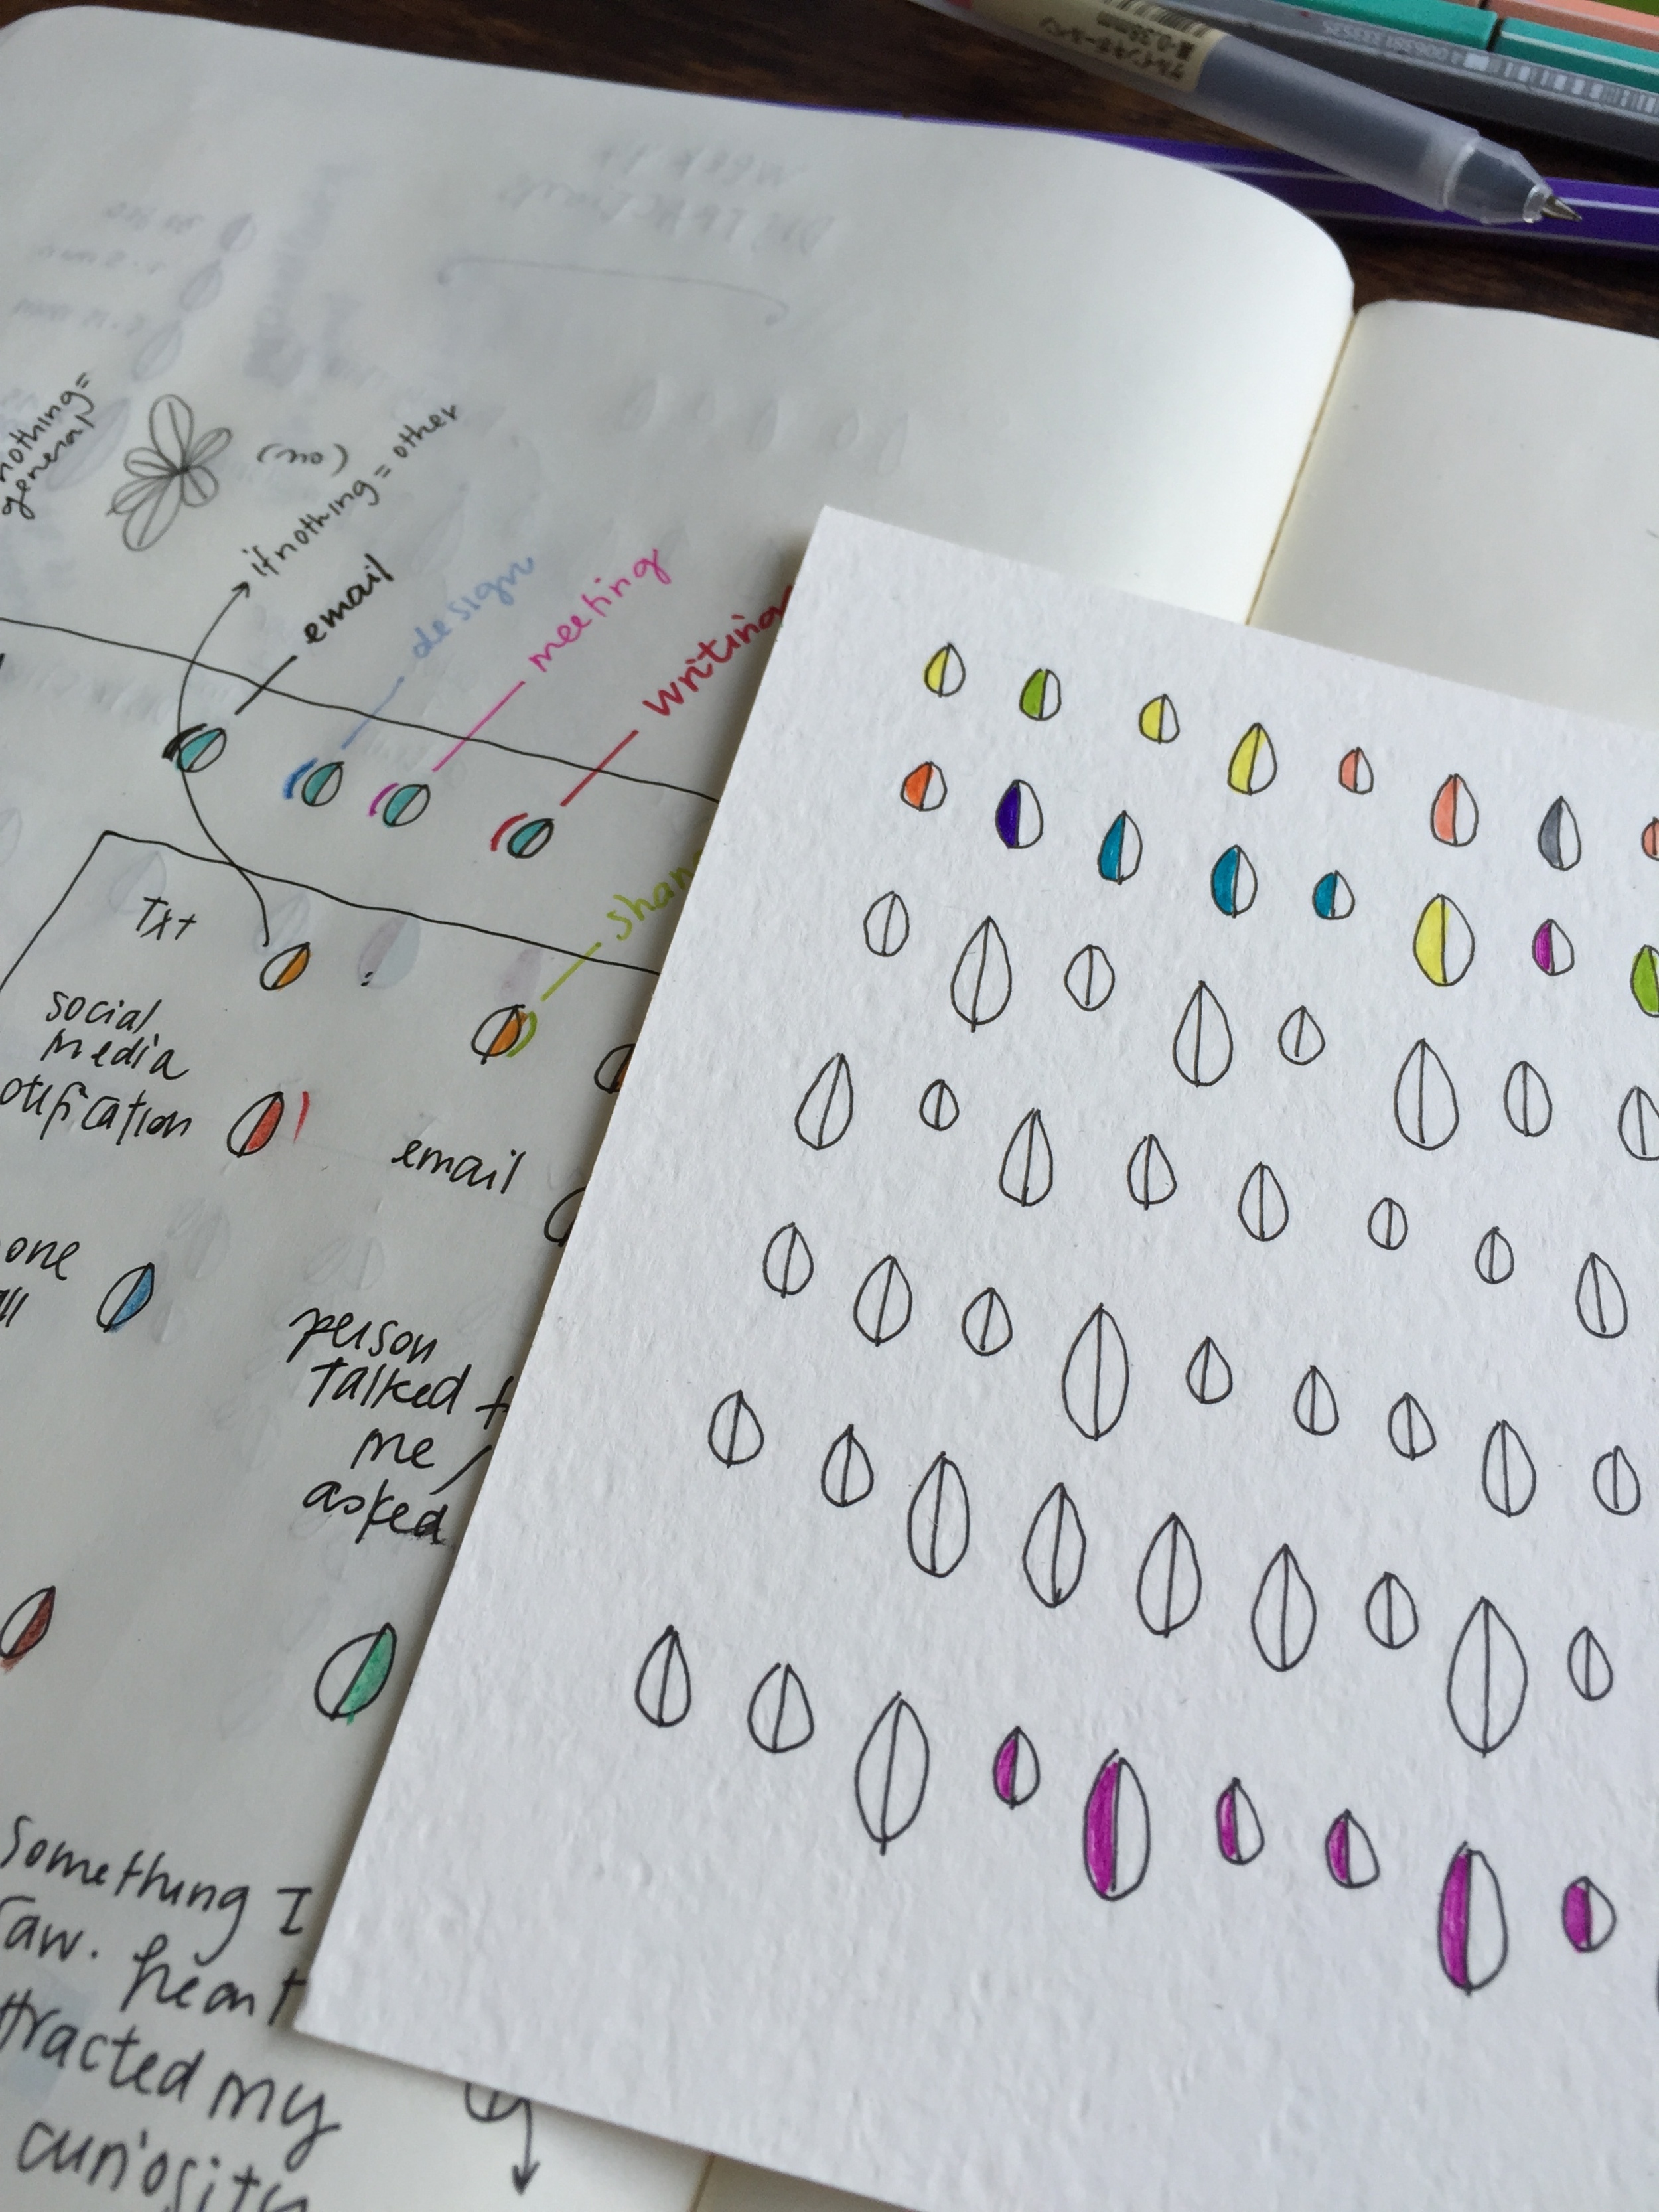 nothing=
general
(no)
if nothing = other
email
design
meeting
writing
Txt
shar
social
media
otification
email
one
ll
person
talked t
me /
asked
something I
aw. heart
ttracted my
curiosity